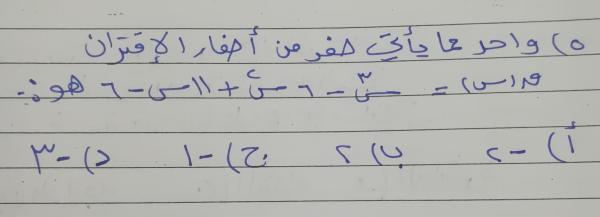 ٥) واحد مما يأتي صفر من أصفار الإقتران
ق(س) = س٣ - ٦س٢ + ١١س - ٦ هو :-
أ) -٢ ب) ٢ ج) -١ د) -٣